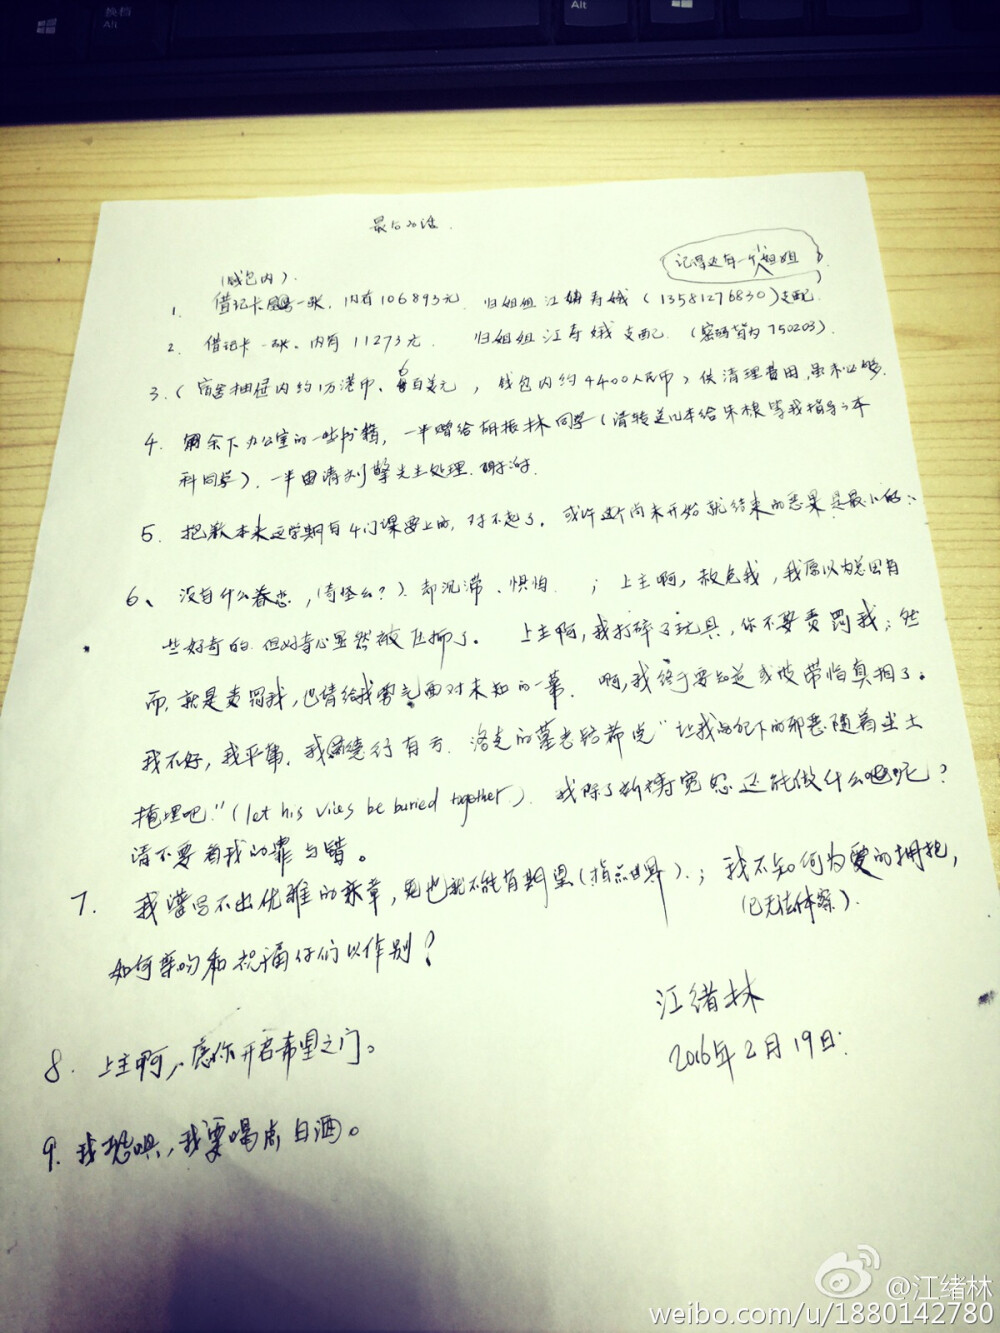 换档
Alt
Alt
最后的话.
(钱包内).
记得还有一个小姐姐
1. 借记卡一张, 内有106893元. 归姐姐江寿娥([phone number omitted])支配.
2. 借记卡一张. 内有11273元. 归姐姐江寿娥支配. (密码皆为[PIN omitted]).
3. (宿舍抽屉内约1万港币、6百美元, 钱包内约4400人民币)供清理费用, 虽未必够.
4. 余下办公室的一些书籍, 一半赠给胡振林同学(请转送几本给朱根等我指导的本
科同学). 一半由请刘擎先生处理. 谢谢.
5. 抱歉本来这学期有4门课要上的, 对不起了. 或许这个尚未开始就结束的恶果是最小的;
6、没有什么眷恋, (奇怪么?) 却沉滞、惧怕. ; 上主啊, 赦免我, 我原以为总因有
些好奇的. 但好奇心显然被压抑了。上主啊, 我打碎了玩具, 你不要责罚我; 然
而, 就是责罚我, 也请给我勇气面对未知的一幕. 啊, 我终于要知道或被带临真相了。
我不好, 我平庸. 我德行有亏. 洛克的墓志铭希望"让我犯下的邪恶随着尘土
掩埋吧."(let his vices be buried together). 我除了祈祷宽恕还能做什么呢?
请不要看我的罪与错。
7. 我谱写不出优雅的乐章, 也就不能有期望(指点世界).; 我不知何为爱的拥抱,
(已无法体察).
如何亲吻和祝福你们以作别?
江绪林
2016年2月19日.
8. 上主啊, 愿你开启希望之门。
9. 我恐惧, 我要喝点白酒。
@江绪林
weibo.com/u/1880142780